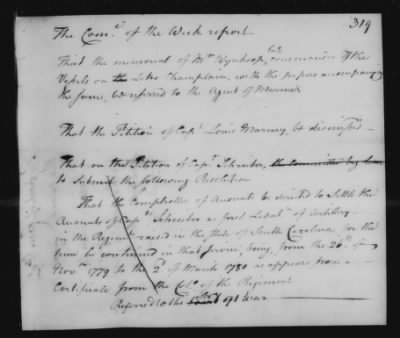 319
The Com.ee of the Week report
That the memorial of Mr Wynkoop, late commander of the
Vessels on the Lake Champlain, with the papers accompanying
the same, be referred to the Agent of Marine
That the Petition of Capt Louis Marnay, be dismissed
That on the Petition of Capt. Schreiber, the Committee beg leave
to Submit the following Resolution
That the Comptroller of Accounts be directed to Settle the
Accounts of Capt Schreiber as first Lieut. of Artillery
in the Regiment raised in the State of South Carolina for the
time he continued in that service, being, from the 26th of
Novr 1779 to the 2d of March 1780 as appears from a
Certificate from the Col. of the Regiment
Referred to the of War